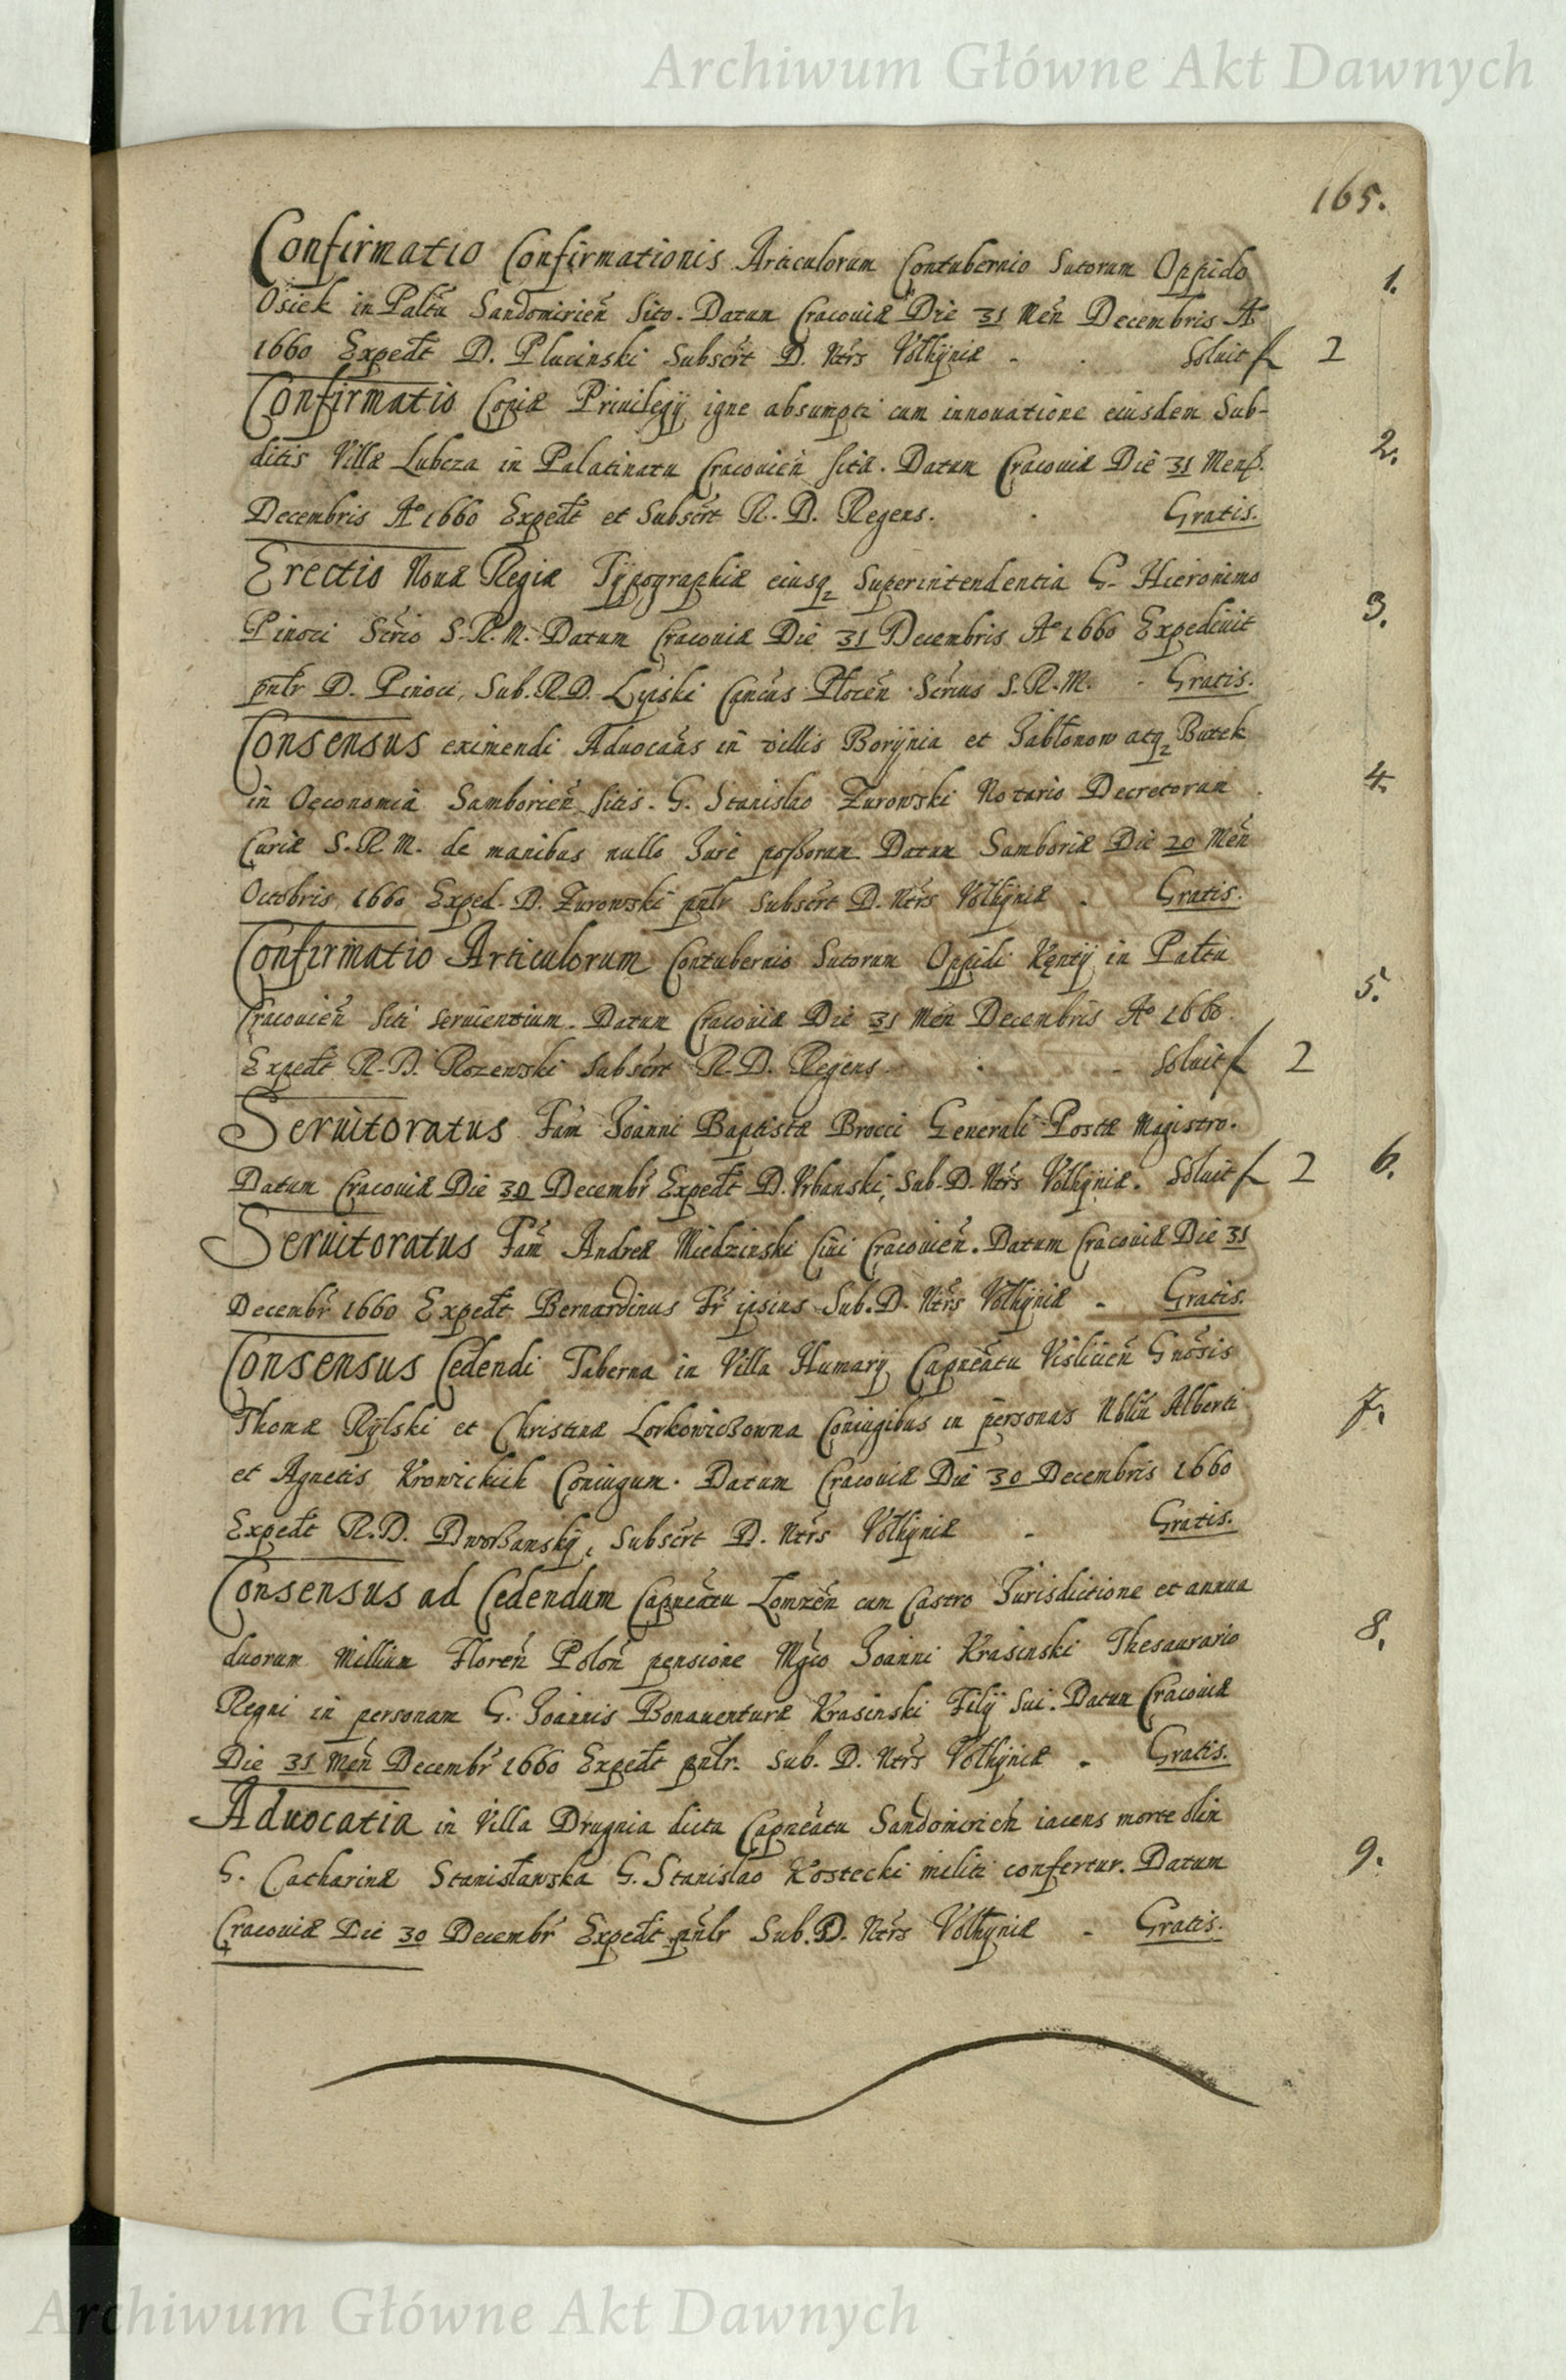 Archiwum Główne Akt Dawnych
165.
Confirmatio Confirmationis Articulorum Contubernio Sutorum Oppido
Osiek in Paltu Sandomirien̄ Sito. Datum Cracoviæ Die 31 Men̄ Decembris Aº 1.
1660 Expedt D. Plucinski Subscrt D. Ntrs Volhyniæ - . Soluit f 2
Confirmatio Copiæ Priuilegij igne absumpti cum innouatione eiusdem Sub-
ditis Villæ Lubcza in Palatinatu Cracouien̄ sitæ. Datum Cracouiæ Die 31 Mens. 2.
Decembris Aº 1660 Expedt et Subscrt R. D. Regens. . Gratis.
Erectio Nouæ Regiæ Typographiæ eiusq Superintendentia G. Hieronimo
Pinoci Scrio S.R.M. Datum Cracouiæ Die 31 Decembris Aº 1660 Expediuit 3.
pntr D. Pinoci, Sub. R.D. Lipski Cancus Plocen̄ Scrius S.R.M. - Gratis.
Consensus eximendi Aduocaas in villis Borynia et Jabłonow atq Butek
in Oeconomia Samborien̄ sitis. G. Stanislao Zurowski Notario Decretorum 4.
Curiæ S.R.M. de manibus nullo Jure possorum. Datum Samboriæ Die 20 Men̄
Octobris 1660 Exped. D. Zurowski pntr Subscrt D. Ntrs Volhyniæ . Gratis.
Confirmatio Articulorum Contubernio Sutorum Oppidi Kęnty in Paltu
Cracouien̄ siti seruientium. Datum Cracouiæ Die 31 Men̄ Decembris Aº 1660. 5.
Expedt R.D. Rozewski Subscrt R.D. Regens . - Soluit f 2
Seruitoratus Fam̄ Joanni Baptistæ Brocci Generali Postæ Magistro.
Datum Cracouiæ Die 30 Decembr Expedt D. Vrbanski, Sub. D. Ntrs Volhyniæ. Soluit f 2 6.
Seruitoratus Fam̄ Andreæ Miedzinski Ciui Cracouien̄. Datum Cracouiæ Die 31
Decembr 1660 Expedt Bernardinus Fr ipsius Sub. D. Ntrs Volhyniæ - Gratis.
Consensus Cedendi Taberna in Villa Humary Capneatu Vislicien̄ Gnosis
Thomæ Rylski et Christinæ Lorkowiczowna Coniugibus in personas Nbliu Alberti 7.
et Agnetis Krowickich Coniugum. Datum Cracouiæ Die 30 Decembris 1660
Expedt R.D. Dworzansky, Subscrt D. Ntrs Volhyniæ - Gratis.
Consensus ad Cedendum Capneatu Lomzen̄ cum Castro Jurisdictione et annua
duorum Millium Floren̄ Polon̄ pensione Mgco Joanni Krasinski Thesaurario 8.
Regni in personam G. Joannis Bonauenturæ Krasinski Filij sui. Datum Cracouiæ
Die 31 Men̄ Decembr 1660 Expedt pntr. Sub. D. Ntrs Volhyniæ - Gratis.
Aduocatia in Villa Drugnia dicta Capneatu Sandomirien̄ iacens morte olim
G. Catharinæ Stanisławska G. Stanislao Kostecki militi confertur. Datum 9.
Cracouiæ Die 30 Decembr Expedt pntr Sub. D. Ntrs Volhyniæ - Gratis.
Archiwum Główne Akt Dawnych